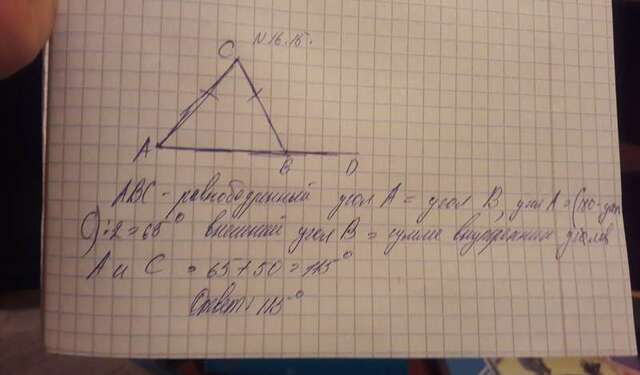 N 16.15.
C
A
B
D
ABC - равнобедренный угол A = угол B, угол A = (180 - угол
C) : 2 = 65° внешний угол B = сумма внутренних углов
A и C = 65 + 50 = 115°
Ответ: 115°